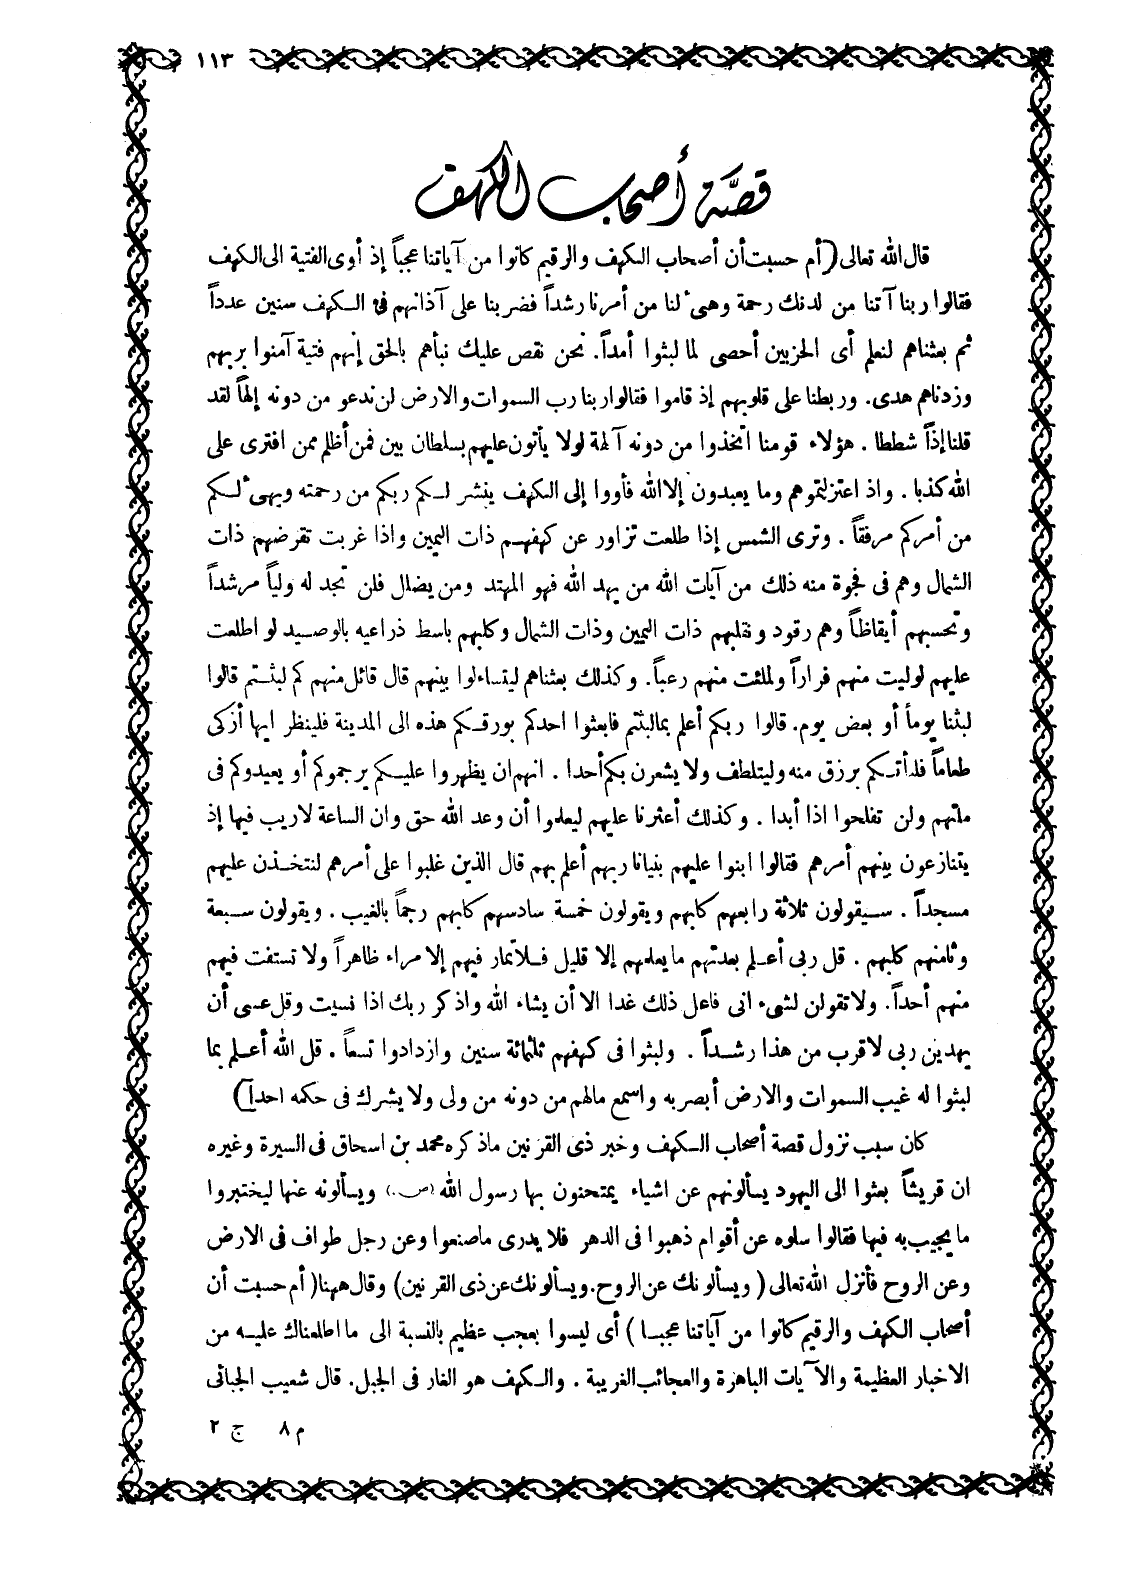 ١١٣
قصة أصحاب الكهف
قال الله تعالى (أم حسبت أن أصحاب الكهف والرقيم كانوا من آياتنا عجباً إذ أوى الفتية الى الكهف
فقالوا ربنا آتنا من لدنك رحمة وهيء لنا من أمرنا رشداً فضربنا على آذانهم في الكهف سنين عدداً
ثم بعثناهم لنعلم أى الحزبين أحصى لما لبثوا أمداً. نحن نقص عليك نبأهم بالحق إنهم فتية آمنوا بربهم
وزدناهم هدى. وربطنا على قلوبهم إذ قاموا فقالوا ربنا رب السموات والارض لن ندعو من دونه إلهاً لقد
قلنا إذاً شططا . هؤلاء قومنا اتخذوا من دونه آلهة لولا يأتون عليهم بسلطان بين فمن أظلم ممن افترى على
الله كذبا . واذ اعتزلتموهم وما يعبدون إلا الله فأووا إلى الكهف ينشر لكم ربكم من رحمته ويهيء لكم
من أمركم مرفقاً . وترى الشمس إذا طلعت تزاور عن كهفهم ذات اليمين واذا غربت تقرضهم ذات
الشمال وهم فى فجوة منه ذلك من آيات الله من يهد الله فهو المهتد ومن يضلل فلن تجد له ولياً مرشداً
وتحسبهم أيقاظاً وهم رقود ونقلبهم ذات اليمين وذات الشمال وكلبهم باسط ذراعيه بالوصيد لو اطلعت
عليهم لوليت منهم فراراً ولملئت منهم رعباً. وكذلك بعثناهم ليتساءلوا بينهم قال قائل منهم كم لبثتم قالوا
لبثنا يوماً أو بعض يوم. قالوا ربكم أعلم بمالبثتم فابعثوا احدكم بورقكم هذه الى المدينة فلينظر ايها أزكى
طعاماً فليأتكم برزق منه وليتلطف ولا يشعرن بكم أحدا . انهم ان يظهروا عليكم يرجموكم أو يعيدوكم فى
ملتهم ولن تفلحوا اذا أبدا . وكذلك أعثرنا عليهم ليعلموا أن وعد الله حق وان الساعة لاريب فيها إذ
يتنازعون بينهم أمرهم فقالوا ابنوا عليهم بنيانا ربهم أعلم بهم قال الذين غلبوا على أمرهم لنتخذن عليهم
مسجداً . سيقولون ثلاثة رابعهم كلبهم ويقولون خمسة سادسهم كلبهم رجماً بالغيب . ويقولون سبعة
وثامنهم كلبهم . قل ربى أعلم بعدتهم مايعلمهم إلا قليل فلا تمار فيهم إلا مراء ظاهراً ولا تستفت فيهم
منهم أحداً. ولا تقولن لشىء انى فاعل ذلك غدا الا أن يشاء الله واذكر ربك اذا نسيت وقل عسى أن
يهدين ربى لاقرب من هذا رشداً . ولبثوا فى كهفهم ثلثمائة سنين وازدادوا تسعاً . قل الله أعلم بما
لبثوا له غيب السموات والارض أبصر به واسمع مالهم من دونه من ولى ولا يشرك فى حكمه احداً)
كان سبب نزول قصة أصحاب الكهف وخبر ذى القرنين ماذكره محمد بن اسحاق فى السيرة وغيره
ان قريشاً بعثوا الى اليهود يسألونهم عن اشياء يمتحنون بها رسول الله (ص.) ويسألونه عنها ليختبروا
ما يجيب به فيها فقالوا سلوه عن أقوام ذهبوا فى الدهر فلا يدرى ماصنعوا وعن رجل طواف فى الارض
وعن الروح فأنزل الله تعالى ( ويسألونك عن الروح. ويسألونك عن ذى القرنين) وقال ههنا ( أم حسبت أن
أصحاب الكهف والرقيم كانوا من آياتنا عجبا ) أى ليسوا بعجب عظيم بالنسبة الى ما اطلعناك عليه من
الاخبار العظيمة والآيات الباهرة والعجائب الغريبة . والكهف هو الغار فى الجبل. قال شعيب الجبائى
م ٨ ج ٢